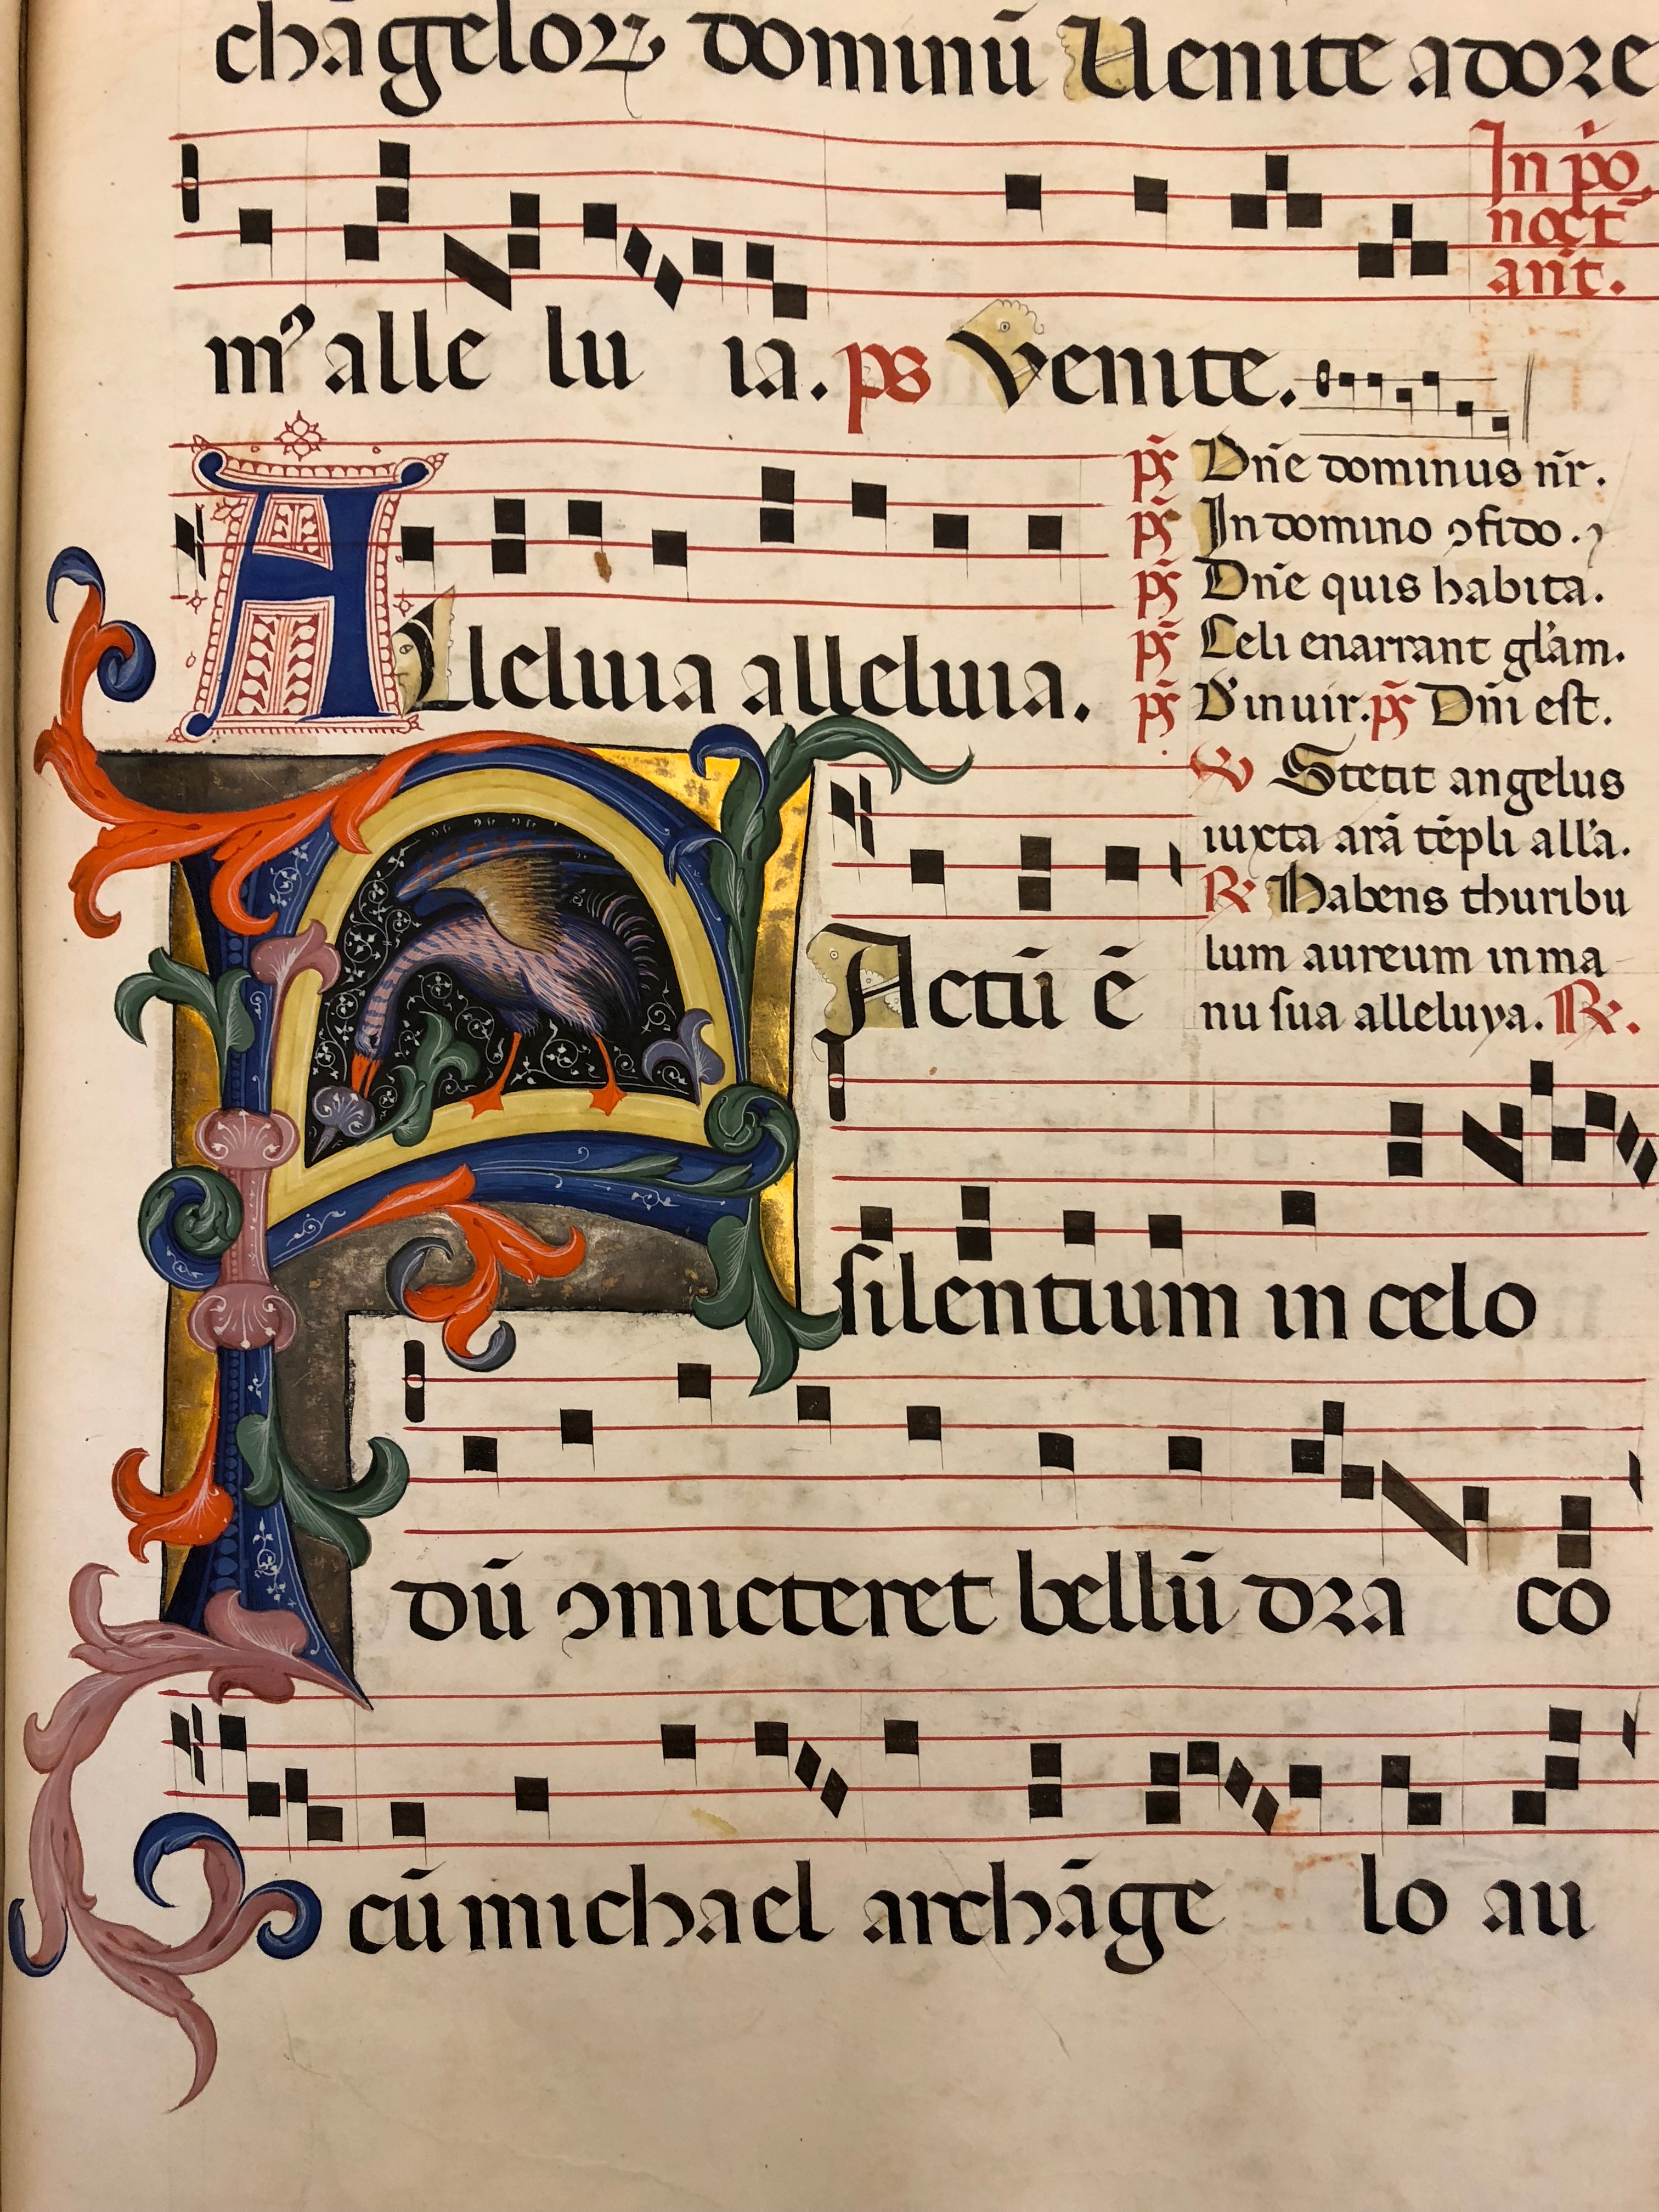 chāgeloꝝ dominū Uenite adore
In p̄o
noct̄
an̄t.
mꝰ alle lu ia. ps Venite.
p̄s Dn̄e dominus nr̄.
p̄s In domino ꝯfido.
p̄s Dn̄e quis habita.
A Lleluia alleluia.
p̄s Celi enarrant gl̄am.
p̄s D'inuir. p̄s Dn̄i est.
℣ Stetit angelus
iuxta arā tēpli all'a.
℟ Habens thuribu
F Actū ē
lum aureum in ma
nu sua alleluya. ℟.
silentium in celo
dū ꝯmicteret bellū dra co
cū michael archāge lo au